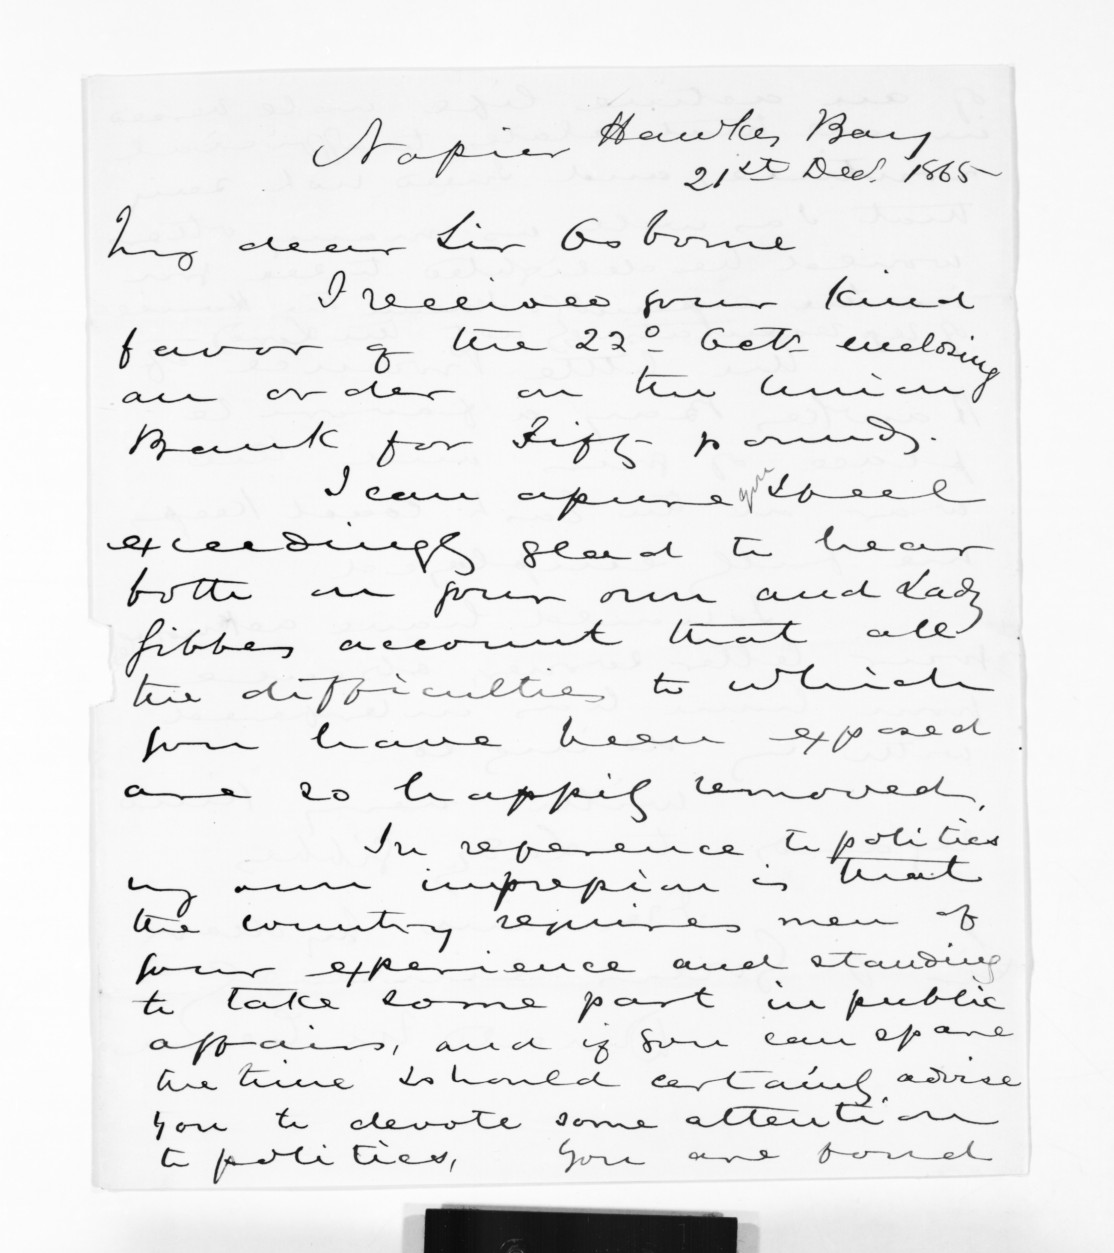 Napier Hawkes Bay
21st Decr. 1865
My dear Sir Osborne
I received your kind
favor of the 22d. Octr enclosing
an order on the Union
Bank for Fifty pounds.
I can assure you I feel
exceedingly glad to hear
both on your own and Lady
Gibbes account that all
the difficulties to which
you have been exposed
are so happily removed,
In reference to politics
my own impression is that
the country requires men of
your experience and standing
to take some part in public
affairs, and if you can spare
the time I should certainly advise
you to devote some attention
to politics, You are fond